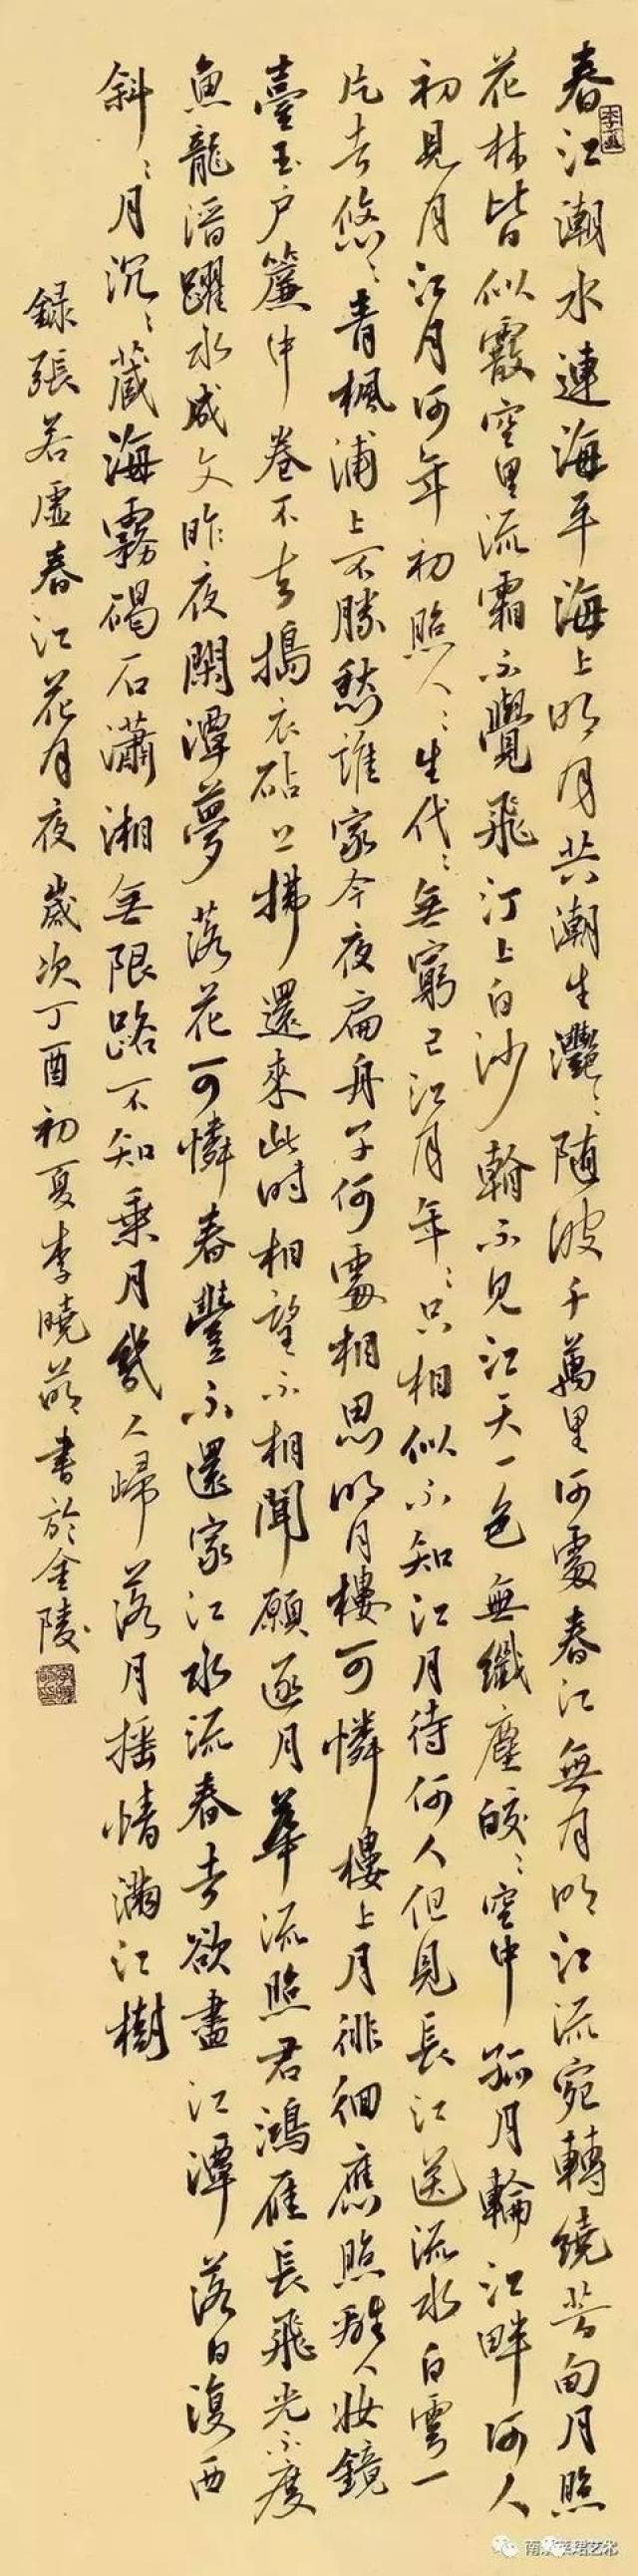 春江潮水連海平海上明月共潮生灧〻随波千萬里何處春江無月明江流宛轉繞芳甸月照
花林皆似霰空里流霜不覺飛汀上白沙看不見江天一色無纖塵皎〻空中孤月輪江畔何人
初見月江月何年初照人〻生代〻無窮已江月年〻只相似不知江月待何人但見長江送流水白雲一
片去悠〻青楓浦上不勝愁誰家今夜扁舟子何處相思明月樓可憐樓上月徘徊應照離人妝鏡
臺玉户簾中卷不去搗衣砧上拂還來此時相望不相聞願逐月華流照君鴻雁長飛光不度
魚龍潛躍水成文昨夜閑潭夢落花可憐春豐不還家江水流春去欲盡江潭落日復西
斜〻月沉〻藏海霧碣石瀟湘無限路不知乘月幾人歸落月摇情滿江樹
録張若虛春江花月夜歲次丁酉初夏李曉書於金陵